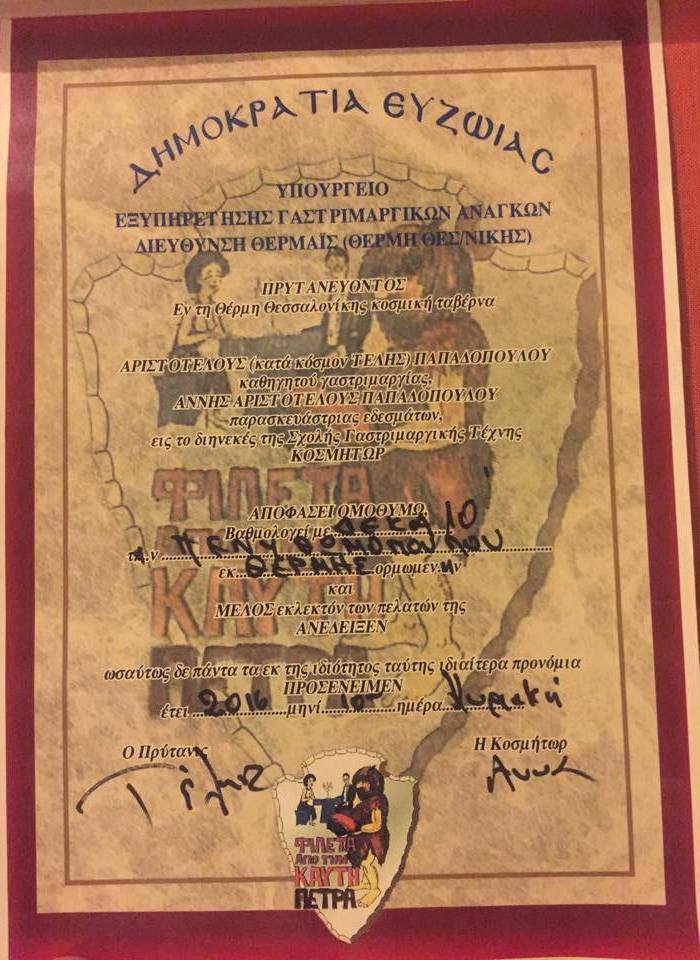 ΔΗΜΟΚΡΑΤΙΑ ΕΥΖΩΙΑΣ
ΥΠΟΥΡΓΕΙΟ
ΕΞΥΠΗΡΕΤΗΣΗΣ ΓΑΣΤΡΙΜΑΡΓΙΚΩΝ ΑΝΑΓΚΩΝ
ΔΙΕΥΘΥΝΣΗ ΘΕΡΜΑΪΣ (ΘΕΡΜΗ ΘΕΣ/ΝΙΚΗΣ)
ΠΡΥΤΑΝΕΥΟΝΤΟΣ
Εν τη Θέρμη Θεσσαλονίκης κοσμική ταβέρνα
ΑΡΙΣΤΟΤΕΛΟΥΣ (κατά κόσμον ΤΕΛΗΣ) ΠΑΠΑΔΟΠΟΥΛΟΥ
καθηγητού γαστριμαργίας,
ΑΝΝΗΣ ΑΡΙΣΤΟΤΕΛΟΥΣ ΠΑΠΑΔΟΠΟΥΛΟΥ
παρασκευάστριας εδεσμάτων,
εις το διηνεκές της Σχολής Γαστριμαργικής Τέχνης
ΚΟΣΜΗΤΩΡ
ΑΠΟΦΑΣΕΙ ΟΜΟΘΥΜΩ,
Βαθμολογεί με ΔΕΚΑ 10
εκ ΘΕΡΜΗΣ ορμωμεν
και
ΜΕΛΟΣ εκλεκτόν των πελατών της
ΑΝΕΔΕΙΞΕΝ
ωσαύτως δε πάντα τα εκ της ιδιότητος ταύτης ιδιαίτερα προνόμια
ΠΡΟΣΕΝΕΙΜΕΝ
έτει 2016 μηνί 10ου ημέρα Κυριακή
Ο Πρύτανις
Η Κοσμήτωρ
Τέλης
Αννα
ΦΙΛΕΤΑ
ΑΠΟ ΤΗΝ
ΚΑΥΤΗ
ΠΕΤΡΑ